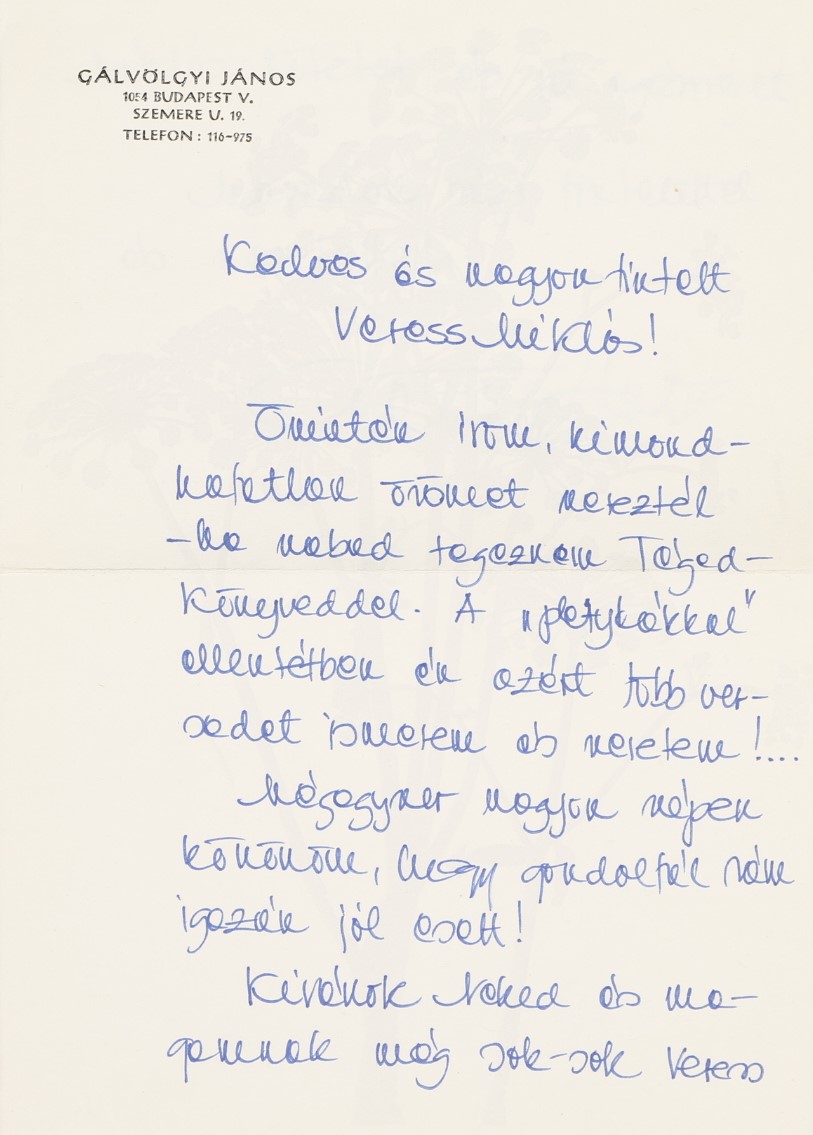 GÁLVÖLGYI JÁNOS
1054 BUDAPEST V.
SZEMERE U. 19.
TELEFON : 116-975
Kedves és nagyon tisztelt
Veress Miklós!
Őszintén írom, kimond-
hatatlan örömet szereztél
-ha szabad tegeznem Téged-
Könyveddel. A „pletykákkal"
ellentétben én azért több ver-
sedet ismerem és szeretem!....
Mégegyszer nagyon szépen
köszönöm, hogy gondoltál rám
igazán jól esett!
Kívánok Neked és ma-
gamnak még sok-sok Veress